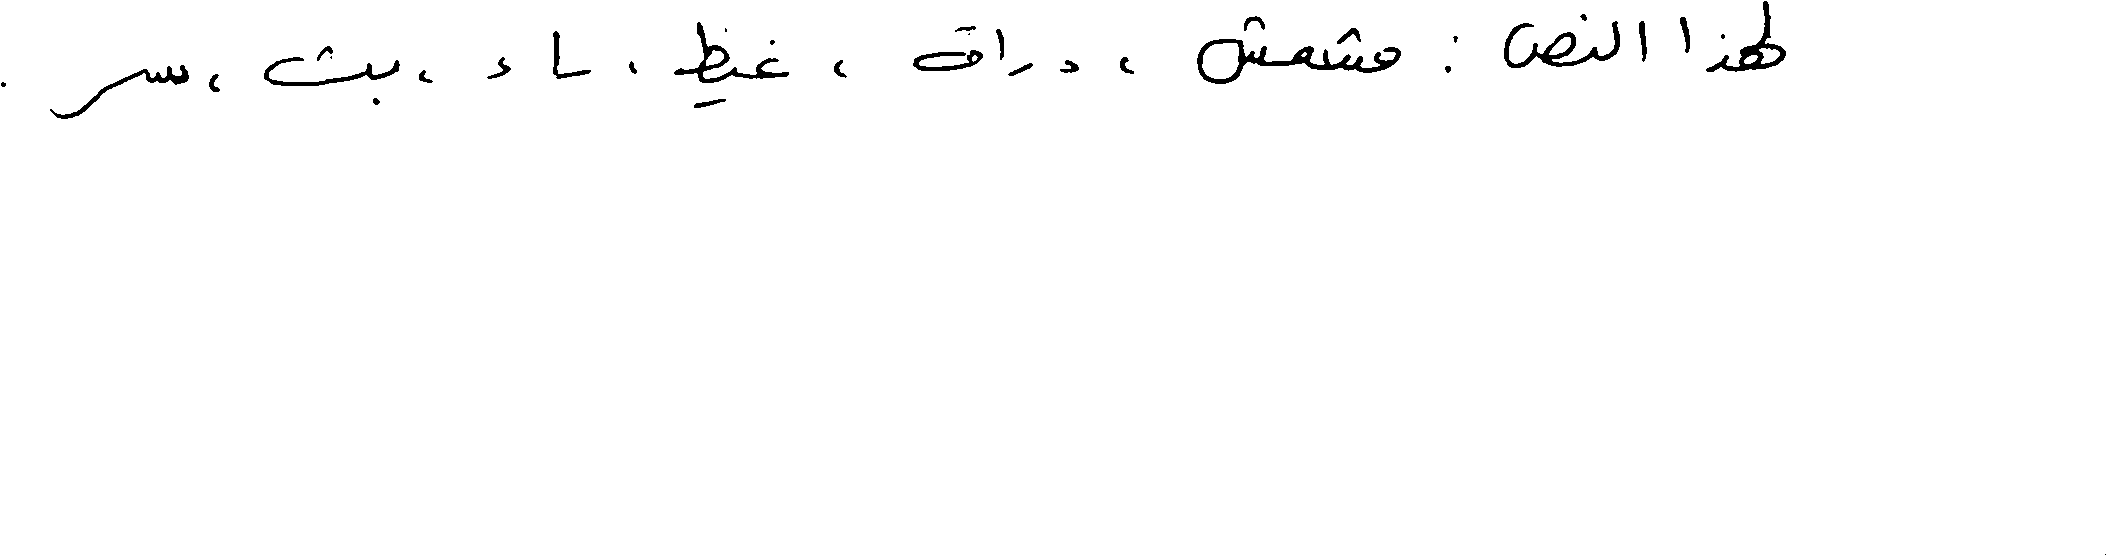 لهذا النص : مشمش ، دراق ، غيظ ، ماء ، بث ، سر .